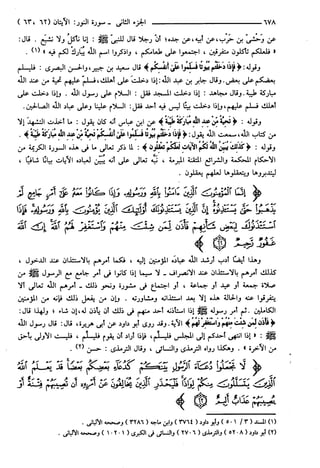 ٦٧٨ الجزء الثانى - سورة النور: الآيتان (٦٢، ٦٣)
عن وَحْشى بن حَرْب، عن أبيه، عن جده؛ أن رجلا قال للنبى ﷺ : إنا نأكلُ ولا نشبَع. قال:
« فلعلكم تأكلون متفرقين ، اجتمعوا على طعامكم ، واذكروا اسم الله يُبَاركْ لكم فيه » (١) .
وقوله: ﴿ فَإِذَا دَخَلْتُم بُيُوتًا فَسَلِّمُوا عَلَىٰ أَنفُسِكُمْ ﴾ قال سعيد بن جبير، والحسن البصرى : فليسلم
بعضكم على بعض. وقال جابر بن عبد الله: إذا دخلت على أهلك، فسلم عليهم تحية من عند الله
مباركة طيبة. وقال مجاهد: إذا دخلت المسجد فقل : السلام على رسول الله . وإذا دخلت على
أهلك فسلم عليهم، وإذا دخلت بيتًا ليس فيه أحد فقل: السلام علينا وعلى عباد الله الصالحين.
وقوله : ﴿ تَحِيَّةً مِّنْ عِندِ اللَّهِ مُبَارَكَةً طَيِّبَةً ﴾ : عن ابن عباس أنه كان يقول : ما أخذت التشهدَ إلا
من كتاب الله، سمعت الله يقول: ﴿ فَإِذَا دَخَلْتُم بُيُوتًا فَسَلِّمُوا عَلَىٰ أَنفُسِكُمْ تَحِيَّةً مِّنْ عِندِ اللَّهِ مُبَارَكَةً طَيِّبَةً ﴾ .
وقوله : ﴿ كَذَٰلِكَ يُبَيِّنُ اللَّهُ لَكُمُ الآيَاتِ لَعَلَّكُمْ تَعْقِلُونَ ﴾ : لما ذكر تعالى ما فى هذه السورة الكريمة من
الأحكام المحكمة والشرائع المتقنة المبرمة ، نبَّه تعالى على أنه يُبيّن لعباده الآيات بيانًا شافيًا ،
ليتدبروها ويتعقلوها لعلهم يعقلون .
إِنَّمَا الْمُؤْمِنُونَ الَّذِينَ آمَنُوا بِاللَّهِ وَرَسُولِهِ وَإِذَا كَانُوا مَعَهُ عَلَىٰ أَمْرٍ جَامِعٍ لَّمْ
يَذْهَبُوا حَتَّىٰ يَسْتَأْذِنُوهُ إِنَّ الَّذِينَ يَسْتَأْذِنُونَكَ أُولَٰئِكَ الَّذِينَ يُؤْمِنُونَ بِاللَّهِ وَرَسُولِهِ فَإِذَا
اسْتَأْذَنُوكَ لِبَعْضِ شَأْنِهِمْ فَأْذَن لِّمَن شِئْتَ مِنْهُمْ وَاسْتَغْفِرْ لَهُمُ اللَّهَ إِنَّ اللَّهَ
غَفُورٌ رَّحِيمٌ ﴿٦٢﴾
وهذا أيضًا أدب أرشد اللهُ عبادَه المؤمنين إليه ، فكما أمرهم بالاستئذان عند الدخول ،
كذلك أمرهم بالاستئذان عند الانصراف - لا سيما إذا كانوا فى أمر جامع مع الرسول ﷺ من
صلاة جمعة أو عيد أو جماعة ، أو اجتماع فى مشورة ونحو ذلك - أمرهم الله تعالى ألا
يتفرقوا عنه والحالة هذه إلا بعد استئذانه ومشاورته . وإن من يفعل ذلك فإنه من المؤمنين
الكاملين . ثم أمر رسوله ﷺ إذا استأذنه أحد منهم فى ذلك أن يأذن له، إن شاء ؛ ولهذا قال:
﴿ فَأْذَن لِّمَن شِئْتَ مِنْهُمْ وَاسْتَغْفِرْ لَهُمُ ﴾ الآية. وقد روى أبو داود عن أبى هريرة، قال: قال رسول الله
ﷺ : « إذا انتهى أحدكم إلى المجلس فليسلِّم، فإذا أراد أن يقوم فليسلِّم ، فليست الأولى بأحق
من الآخرة ». وهكذا رواه الترمذى والنسائى ، وقال الترمذى : حسن (٢).
لَّا تَجْعَلُوا دُعَاءَ الرَّسُولِ بَيْنَكُمْ كَدُعَاءِ بَعْضِكُم بَعْضًا قَدْ يَعْلَمُ اللَّهُ
الَّذِينَ يَتَسَلَّلُونَ مِنكُمْ لِوَاذًا فَلْيَحْذَرِ الَّذِينَ يُخَالِفُونَ عَنْ أَمْرِهِ أَن تُصِيبَهُمْ فِتْنَةٌ أَوْ
يُصِيبَهُمْ عَذَابٌ أَلِيمٌ ﴿٦٣﴾
(١) المسند (٣ / ٥٠١) وأبو داود (٣٧٦٤) وابن ماجه (٣٢٨٦) وصححه الألبانى .
(٢) أبو داود (٥٢٠٨) والترمذى (٢٧٠٦) والنسائى فى الكبرى (١٠٢٠١) وصححه الألبانى .